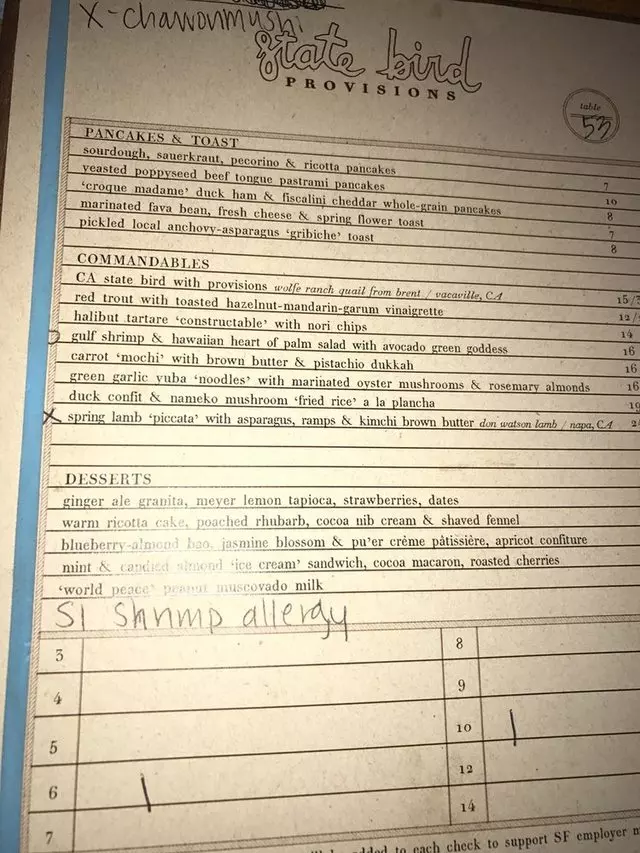 X-chawonmushi
state bird
PROVISIONS
table
53
PANCAKES & TOAST
sourdough, sauerkraut, pecorino & ricotta pancakes 7
yeasted poppyseed beef tongue pastrami pancakes 10
'croque madame' duck ham & fiscalini cheddar whole-grain pancakes 8
marinated fava bean, fresh cheese & spring flower toast 7
pickled local anchovy-asparagus 'gribiche' toast 8
COMMANDABLES
CA state bird with provisions wolfe ranch quail from brent / vacaville, CA 15/
red trout with toasted hazelnut-mandarin-garum vinaigrette 12/
halibut tartare 'constructable' with nori chips 14
gulf shrimp & hawaiian heart of palm salad with avocado green goddess 16
carrot 'mochi' with brown butter & pistachio dukkah 16
green garlic yuba 'noodles' with marinated oyster mushrooms & rosemary almonds 16
duck confit & nameko mushroom 'fried rice' a la plancha
X spring lamb 'piccata' with asparagus, ramps & kimchi brown butter don watson lamb / napa, CA
DESSERTS
ginger ale granita, meyer lemon tapioca, strawberries, dates
warm ricotta cake, poached rhubarb, cocoa nib cream & shaved fennel
blueberry-almond bao, jasmine blossom & pu'er crème pâtissière, apricot confiture
mint & candied almond 'ice cream' sandwich, cocoa macaron, roasted cherries
'world peace' peanut muscovado milk
S1 shrimp allergy
3 8
4 9
5 10
6 12
7 14
added to each check to support SF employer